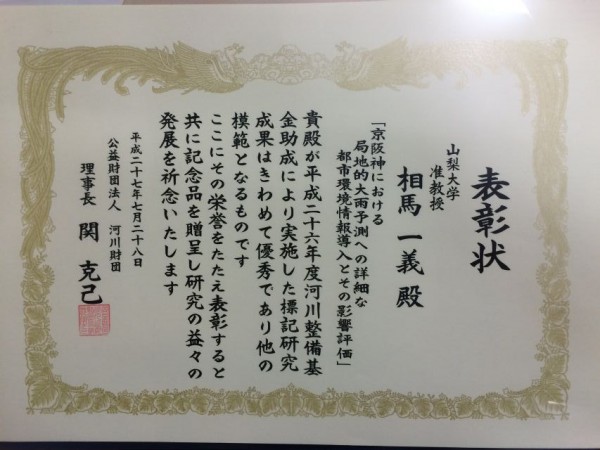 表彰状
山梨大学
准教授
相馬 一義 殿
「京阪神における
局地的大雨予測への詳細な
都市環境情報導入とその影響評価」
貴殿が平成二十六年度河川整備基
金助成により実施した標記研究
成果はきわめて優秀であり他の
模範となるものです
ここにその栄誉をたたえ表彰すると
共に記念品を贈呈し研究の益々の
発展を祈念いたします
平成二十七年七月二十八日
公益財団法人 河川財団
理事長 関 克己